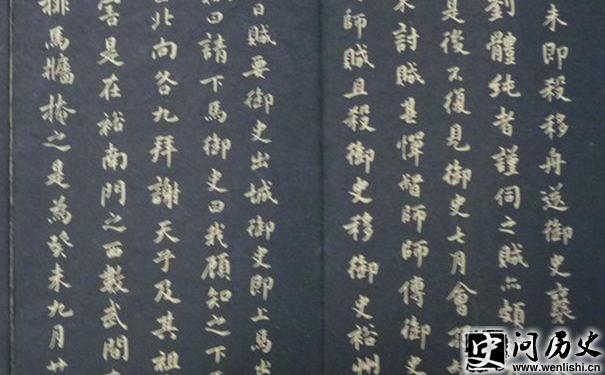 未即殺移舟送御史襄
劉體純者謹伺之賊亦頗
是後不復見御史七月會
討賊甚憚督師師傳御史
師賊且殺御史移御史裕州
日賊要御史出城御史即上馬出
曰請下馬御史曰我顧知之下
北向各九拜謝天子及其祖
害是在裕南門之西數武閻
排馬牆掩之是為癸未九月廿
问历史
www.wenlishi.cn